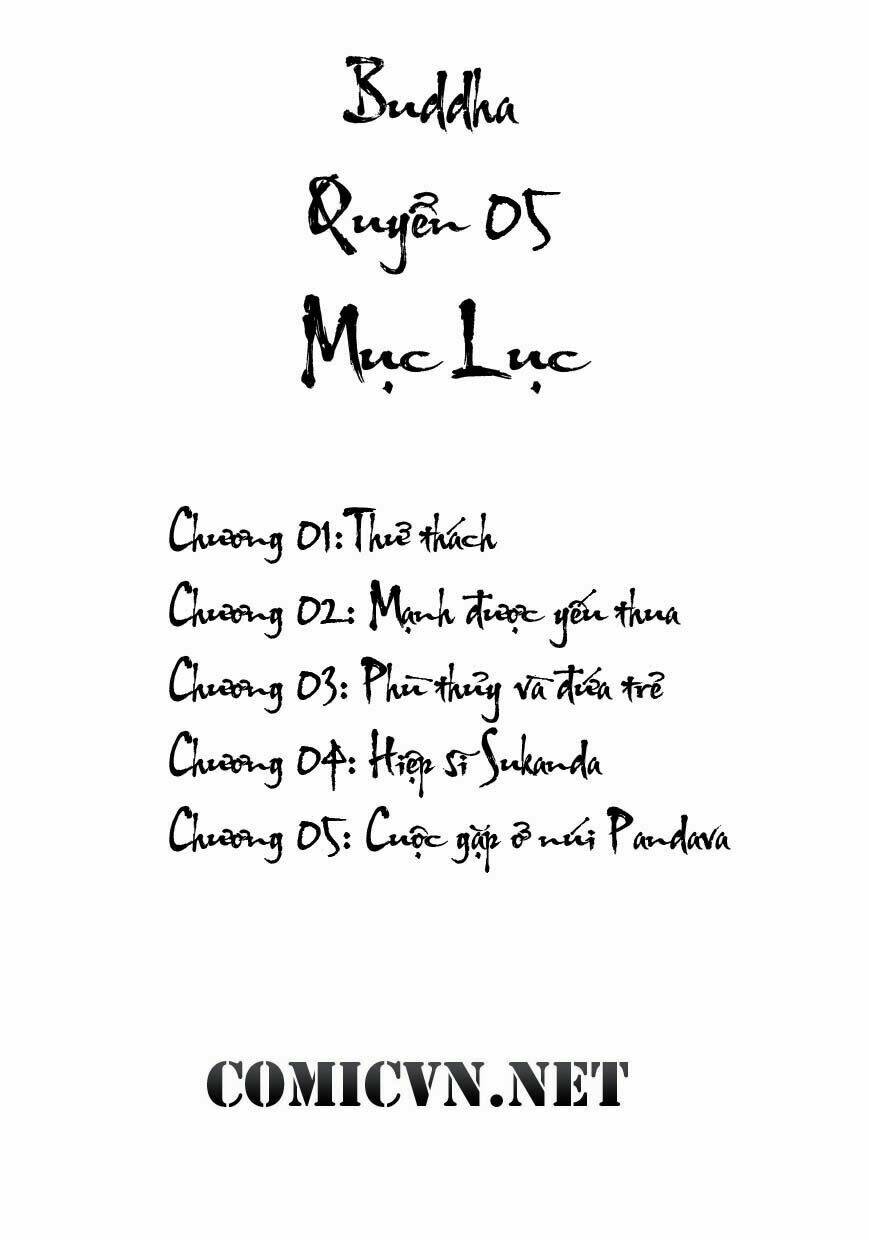 Buddha
Quyển 05
Mục Lục
Chương 01: Thử thách
Chương 02: Mạnh được yếu thua
Chương 03: Phù thủy và đứa trẻ
Chương 04: Hiệp sĩ Sukanda
Chương 05: Cuộc gặp ở núi Pandava
COMICVN.NET